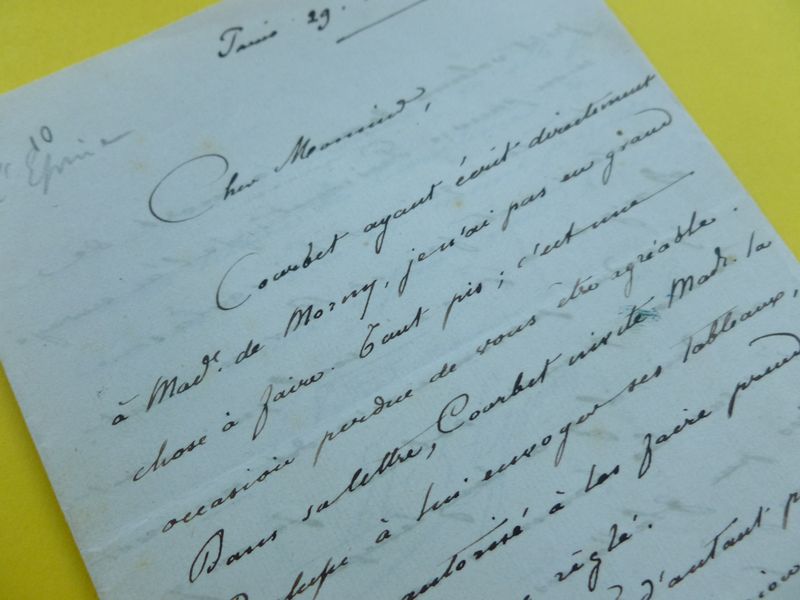 29.
10
Cher Monsieur,
Courbet ayant écrit directement
à Made. de Morny, je n'ai pas eu grand
chose à faire. Tant pis ; c'est une
occasion perdue de vous être agréable.
Dans sa lettre, Courbet invite Made. la
à lui envoyer ses tableaux,
autorisé à les faire prend
réglé.
d'autant p